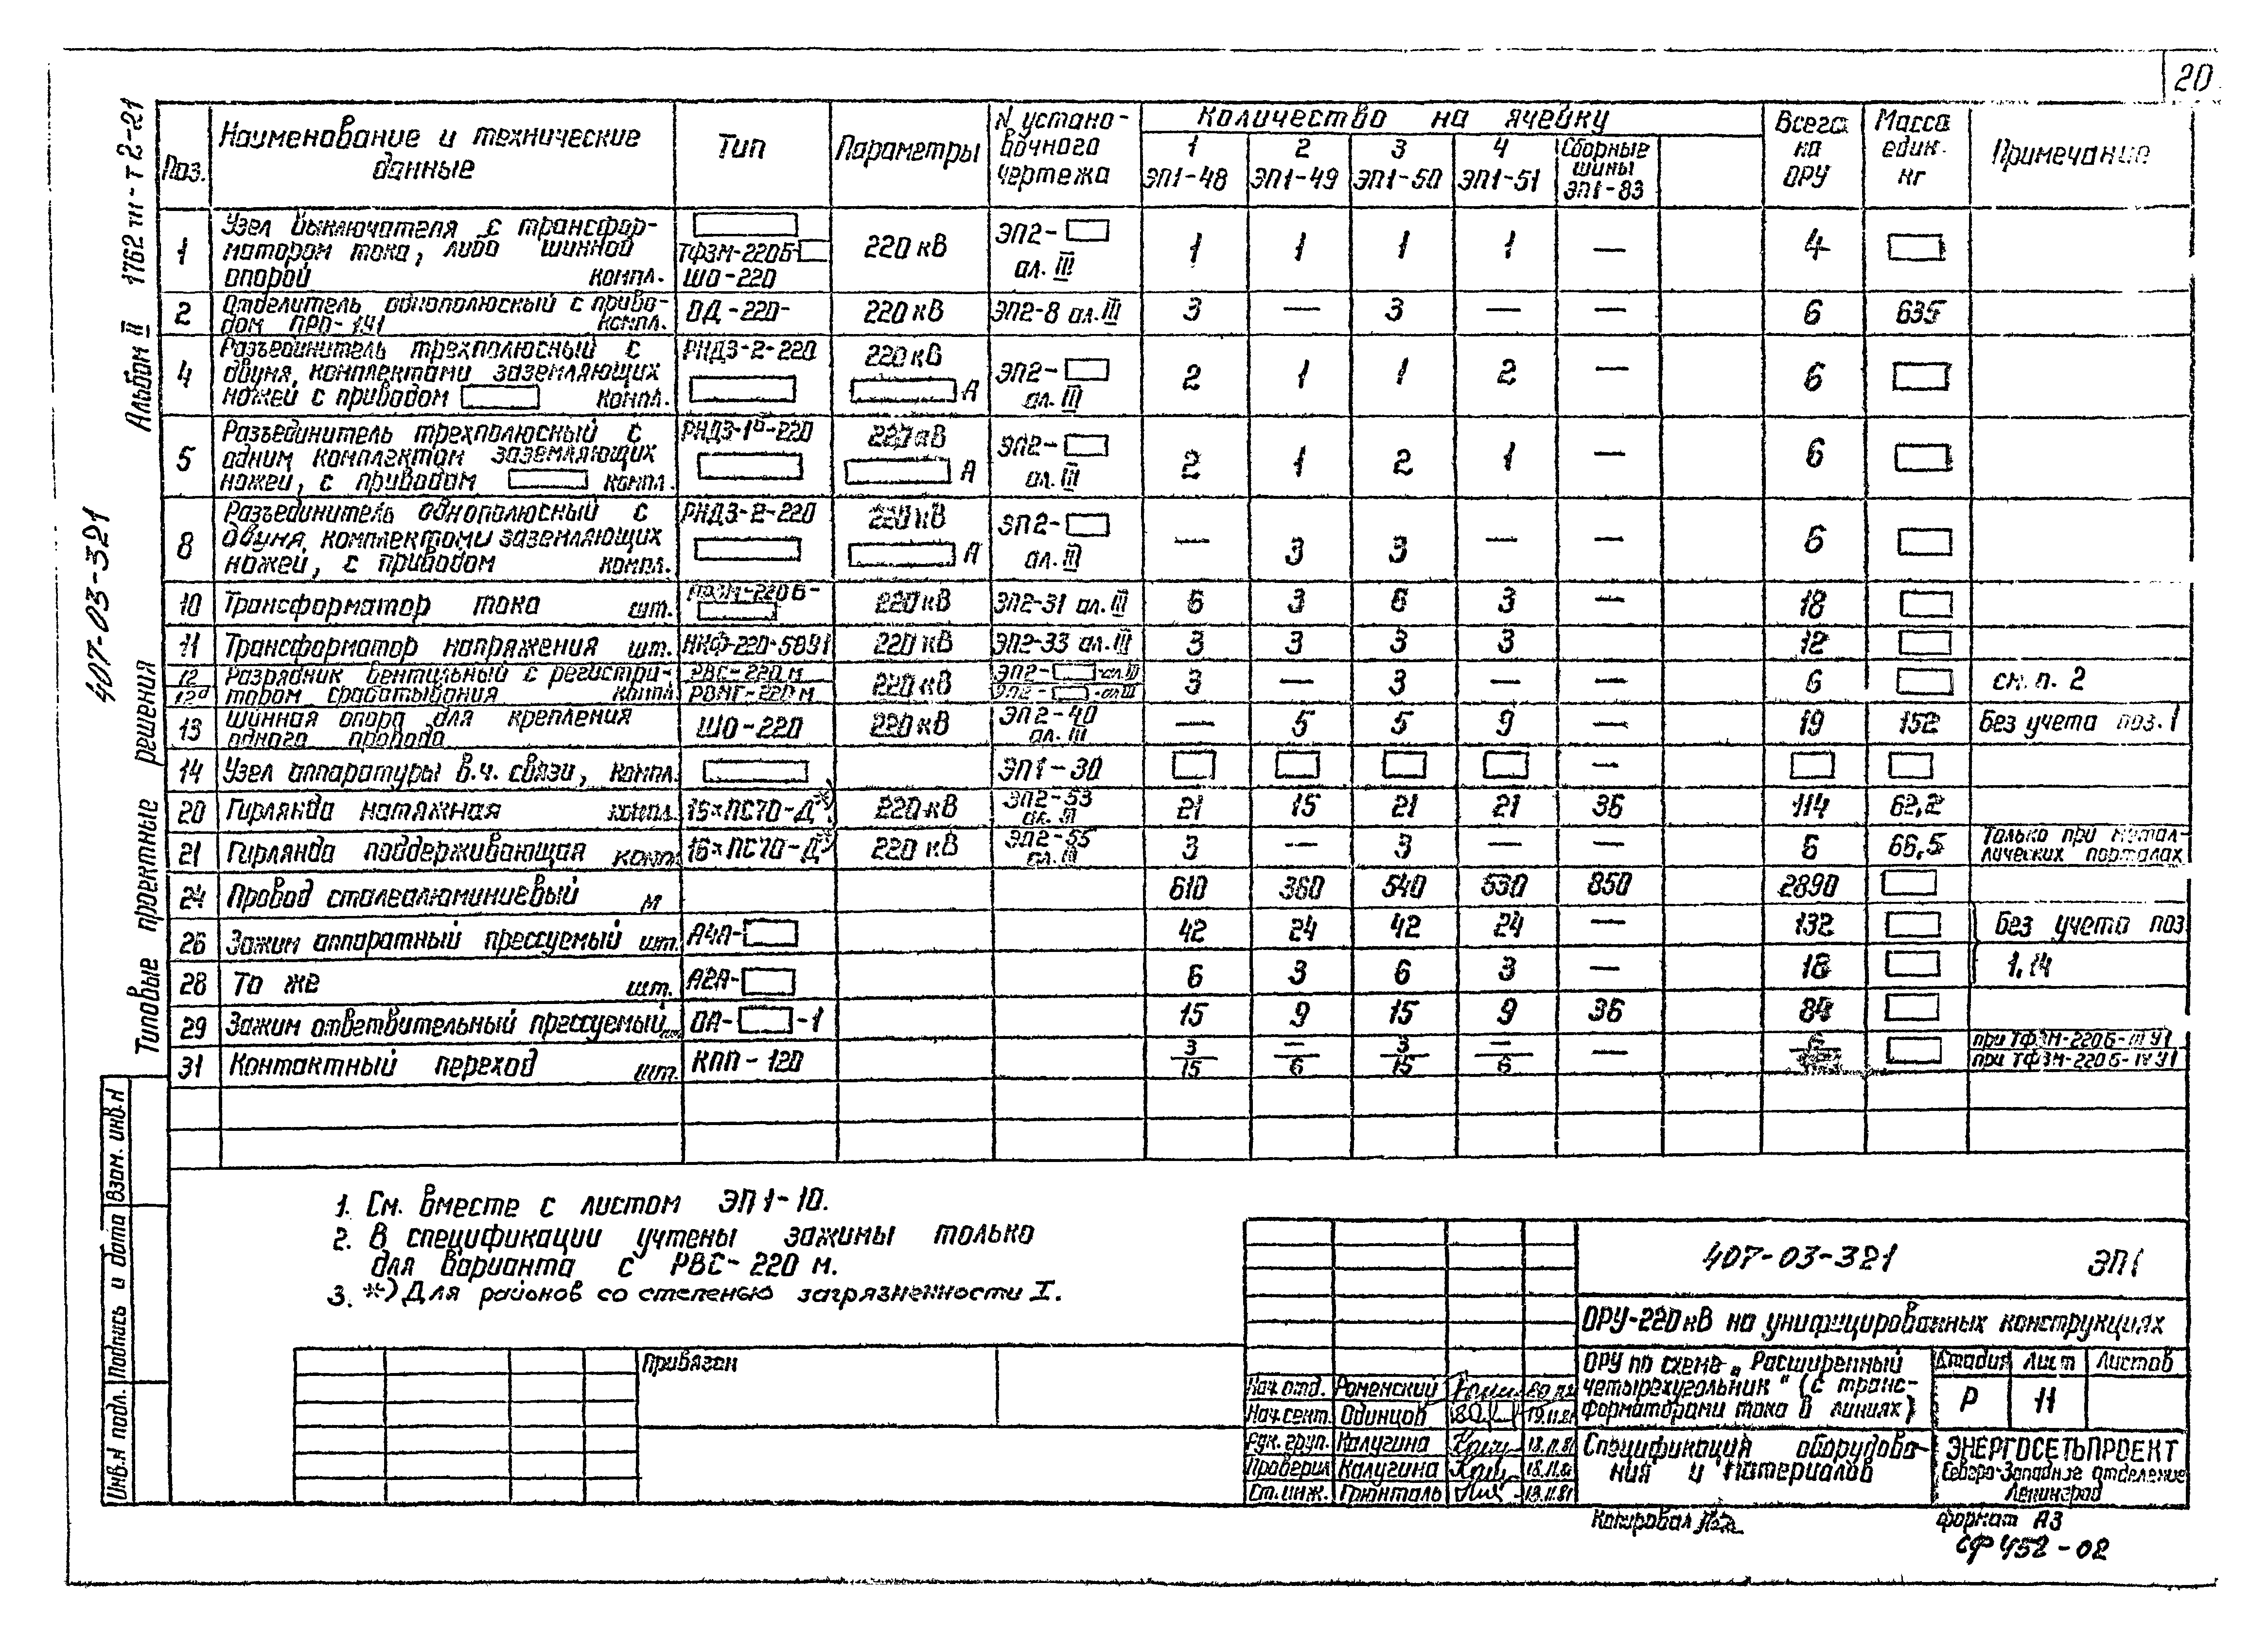 20
Альбом II 1762 тп-т2-21
407-03-321
Типовые проектные решения
Поз. | Наименование и технические данные | Тип | Параметры | N установочного чертежа | Количество на ячейку | Всего на ОРУ | Масса един. кг | Примечание
1 ЭП1-48 | 2 ЭП1-49 | 3 ЭП1-50 | 4 ЭП1-51 | Сборные шины ЭП1-83
1 | Узел выключателя с трансформатором тока, либо шинной опорой компл. | ТФЗМ-220Б- ШО-220 | 220 кВ | ЭП2- ал. III | 1 | 1 | 1 | 1 | — | 4
2 | Отделитель однополюсный с приводом ПРО-1У1 компл. | ОД-220- | 220 кВ | ЭП2-8 ал. III | 3 | — | 3 | — | — | 6 | 635
4 | Разъединитель трехполюсный с двумя комплектами заземляющих ножей с приводом компл. | РНДЗ-2-220 | 220 кВ А | ЭП2- ал. III | 2 | 1 | 1 | 2 | — | 6
5 | Разъединитель трехполюсный с одним комплектом заземляющих ножей, с приводом компл. | РНДЗ-1б-220 | 220 кВ А | ЭП2- ал. III | 2 | 1 | 2 | 1 | — | 6
8 | Разъединитель однополюсный с двумя комплектами заземляющих ножей, с приводом компл. | РНДЗ-2-220 | 220 кВ А | ЭП2- ал. III | — | 3 | 3 | — | — | 6
10 | Трансформатор тока шт. | ТФЗМ-220Б- | 220 кВ | ЭП2-31 ал. III | 6 | 3 | 6 | 3 | — | 18
11 | Трансформатор напряжения шт. | НКФ-220-58У1 | 220 кВ | ЭП2-33 ал. III | 3 | 3 | 3 | 3 | | 12
12 12а | Разрядник вентильный с регистратором срабатывания компл. | РВС-220 м РВМГ-220 м | 220 кВ | ЭП2- ал III ЭП2- ал III | 3 | — | 3 | — | — | 6 | | см. п. 2
13 | Шинная опора для крепления одного провода | ШО-220 | 220 кВ | ЭП2-40 ал. III | — | 5 | 5 | 9 | — | 19 | 152 | Без учета поз. 1
14 | Узел аппаратуры в.ч. связи, компл. | | | ЭП1-30 | | | | | —
20 | Гирлянда натяжная компл. | 15×ПС70-Д*) | 220 кВ | ЭП2-53 ал. III | 21 | 15 | 21 | 21 | 36 | 114 | 62,2
21 | Гирлянда поддерживающая комп. | 16×ПС70-Д*) | 220 кВ | ЭП2-55 ал. III | 3 | — | 3 | — | — | 6 | 66,5 | Только при металлических порталах
24 | Провод сталеалюминиевый м | | | | 610 | 360 | 540 | 530 | 850 | 2890
26 | Зажим аппаратный прессуемый шт. | А4А- | | | 42 | 24 | 42 | 24 | — | 132 | | Без учета поз
28 | То же шт. | А2А- | | | 6 | 3 | 6 | 3 | — | 18 | | 1, 14
29 | Зажим ответвительный прессуемый шт. | ОА- -1 | | | 15 | 9 | 15 | 9 | 36 | 84
31 | Контактный переход шт. | КПП-120 | | | 3/15 | —/6 | 3/15 | —/6 | — | 6/ | | при ТФЗМ-220Б-III У1 при ТФЗМ-220Б-IV У1
1. См. вместе с листом ЭП1-10.
2. В спецификации учтены зажимы только
для варианта с РВС-220 м.
3. *) Для районов со степенью загрязненности I.
Взам. инв. N
Подпись и дата
Инв. N подл.
Привязан
407-03-321 ЭП1
ОРУ-220 кВ на унифицированных конструкциях
ОРУ по схеме „Расширенный четырехугольник“ (с трансформаторами тока в линиях)
Стадия | Лист | Листов
Р | 11
Спецификация оборудования и материалов
ЭНЕРГОСЕТЬПРОЕКТ
Северо-Западное отделение
Ленинград
Нач. отд. Роменский
Нач. сект. Одинцов 19.11.81
Рук. груп. Калугина 18.11.81
Проверил Калугина 18.11.81
Ст. инж. Грюнталь 13.11.81
Копировал
формат А3
СФ 452-02